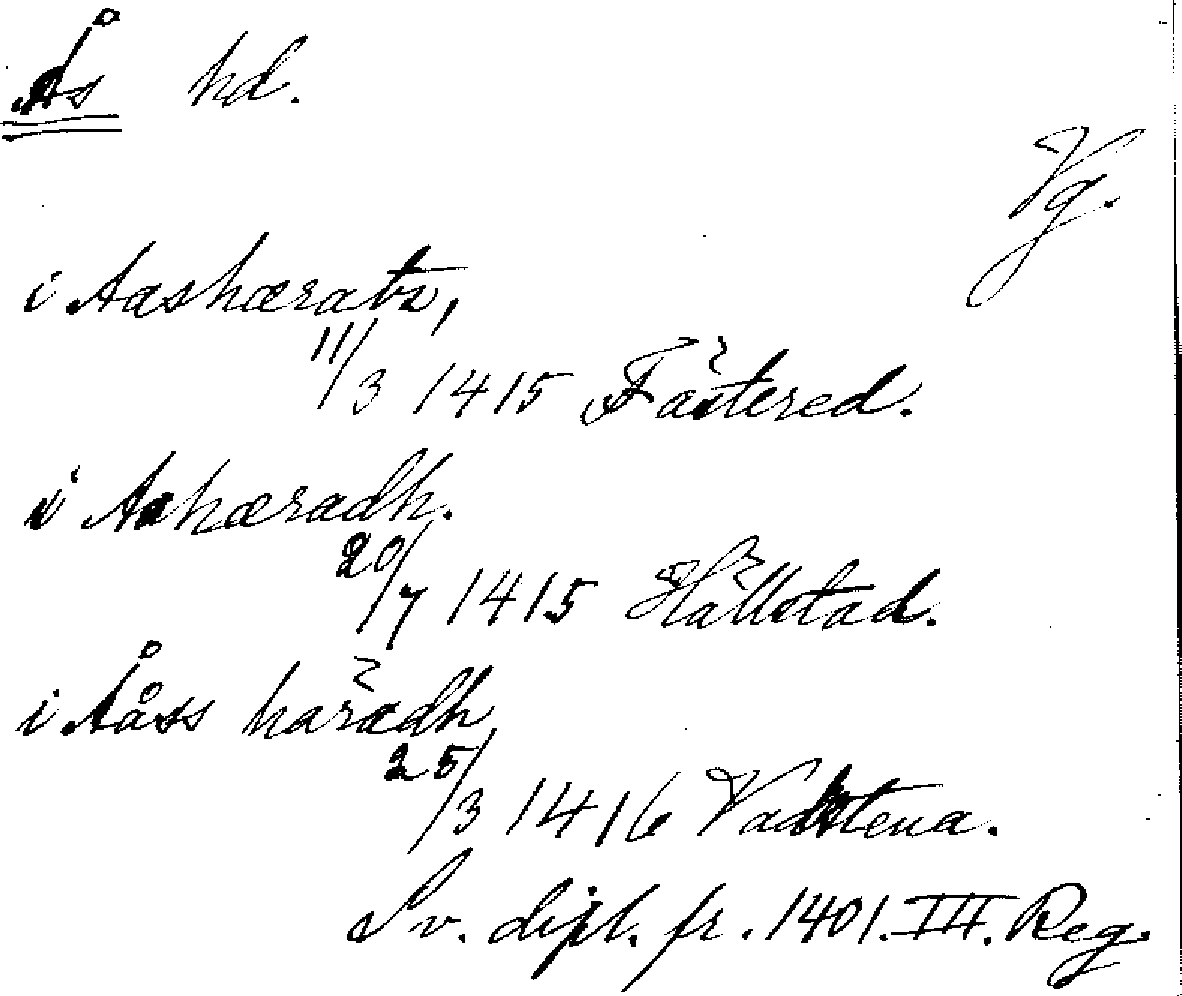 Ås hd.
Vg.
i Aashæratz,
11/3 1415 Fästered.
i Aahæradh.
20/7 1415 Hällstad.
i Aåss härädh
25/3 1416 Vadstena.
Sv. dipl. fr. 1401. III. Reg.